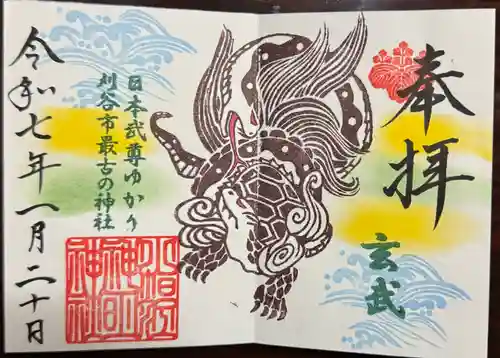 奉拝
玄武
日本武尊ゆかり
刈谷市最古の神社
令和七年一月二十日